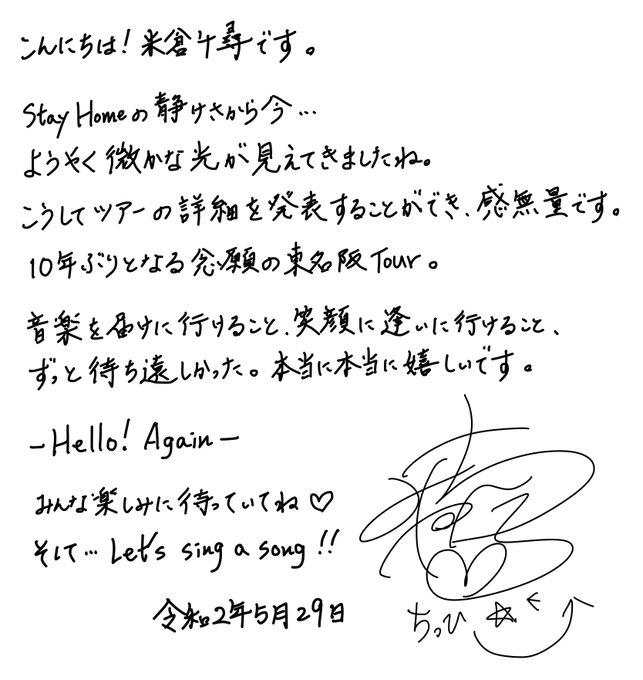 こんにちは！米倉千尋です。
Stay Homeの静けさから今…
ようやく微かな光が見えてきましたね。
こうしてツアーの詳細を発表することができ、感無量です。
10年ぶりとなる念願の東名阪Tour。
音楽を届けに行けること、笑顔に逢いに行けること、
ずっと待ち遠しかった。本当に本当に嬉しいです。
－Hello! Again－
みんな楽しみに待っていてね♡
そして…Let's sing a song!!
ちっひ
令和2年5月29日